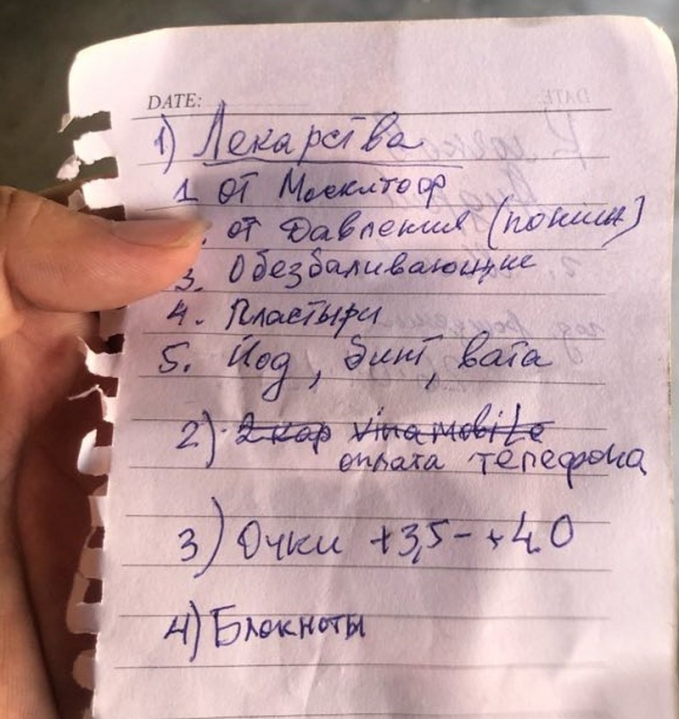 DATE:
1) Лекарства
1 от Москитоф
. от Давления (пониж)
3. Обезбаливающие
4. Пластыри
5. Йод, бинт, вата
2) 2 кар Vinamobile
оплата телефона
3) Очки +3,5 - +4.0
4) Блокноты